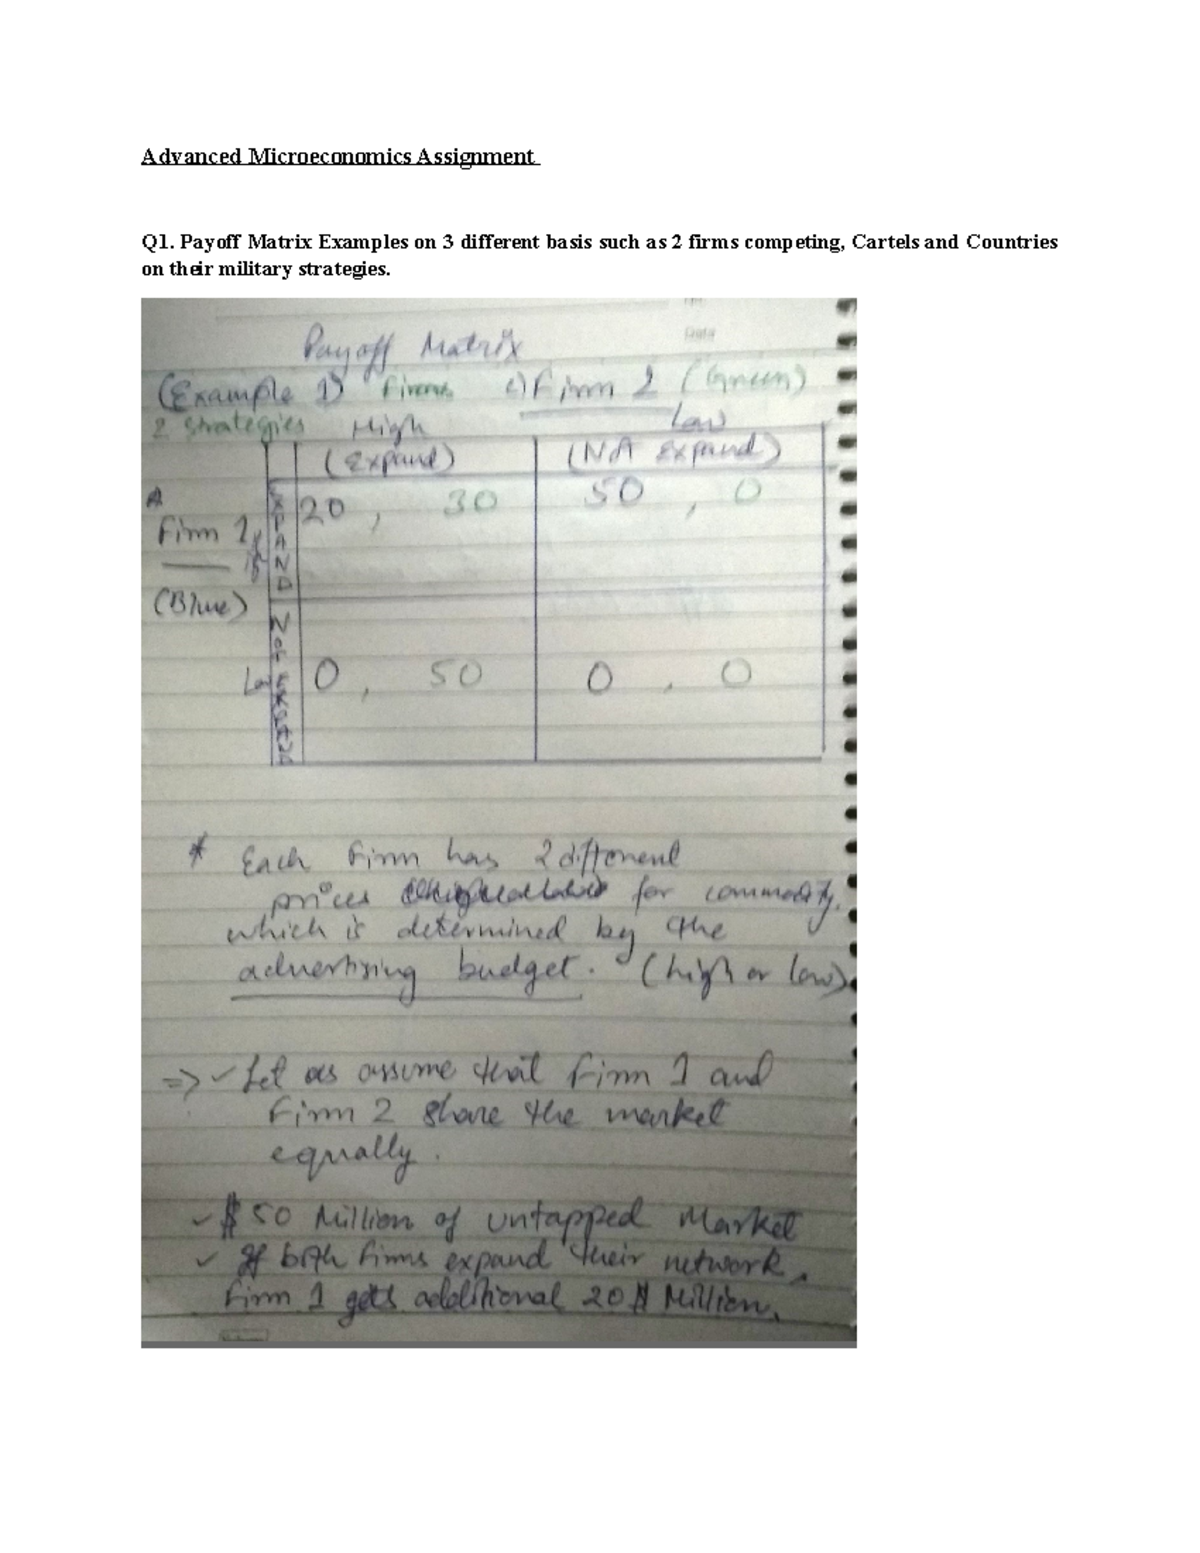 Advanced Microeconomics Assignment
Q1. Payoff Matrix Examples on 3 different basis such as 2 firms competing, Cartels and Countries
on their military strategies.
Payoff Matrix
Date
(Example 1) Firms Firm 2 (Green)
2 strategies High Low
(Expand) (Not Expand)
A
Firm 1
(Blue)
EXPAND 20 , 30 50 , 0
Low NOT EXPAND 0 , 50 0 , 0
* Each Firm has 2 different
prices for commodity,
which is determined by the
advertising budget. (high or low)
=> ✓ Let us assume that Firm 1 and
Firm 2 share the market
equally.
✓ $50 Million of untapped Market
✓ If both Firms expand their network,
Firm 1 gets additional 20$ Million.